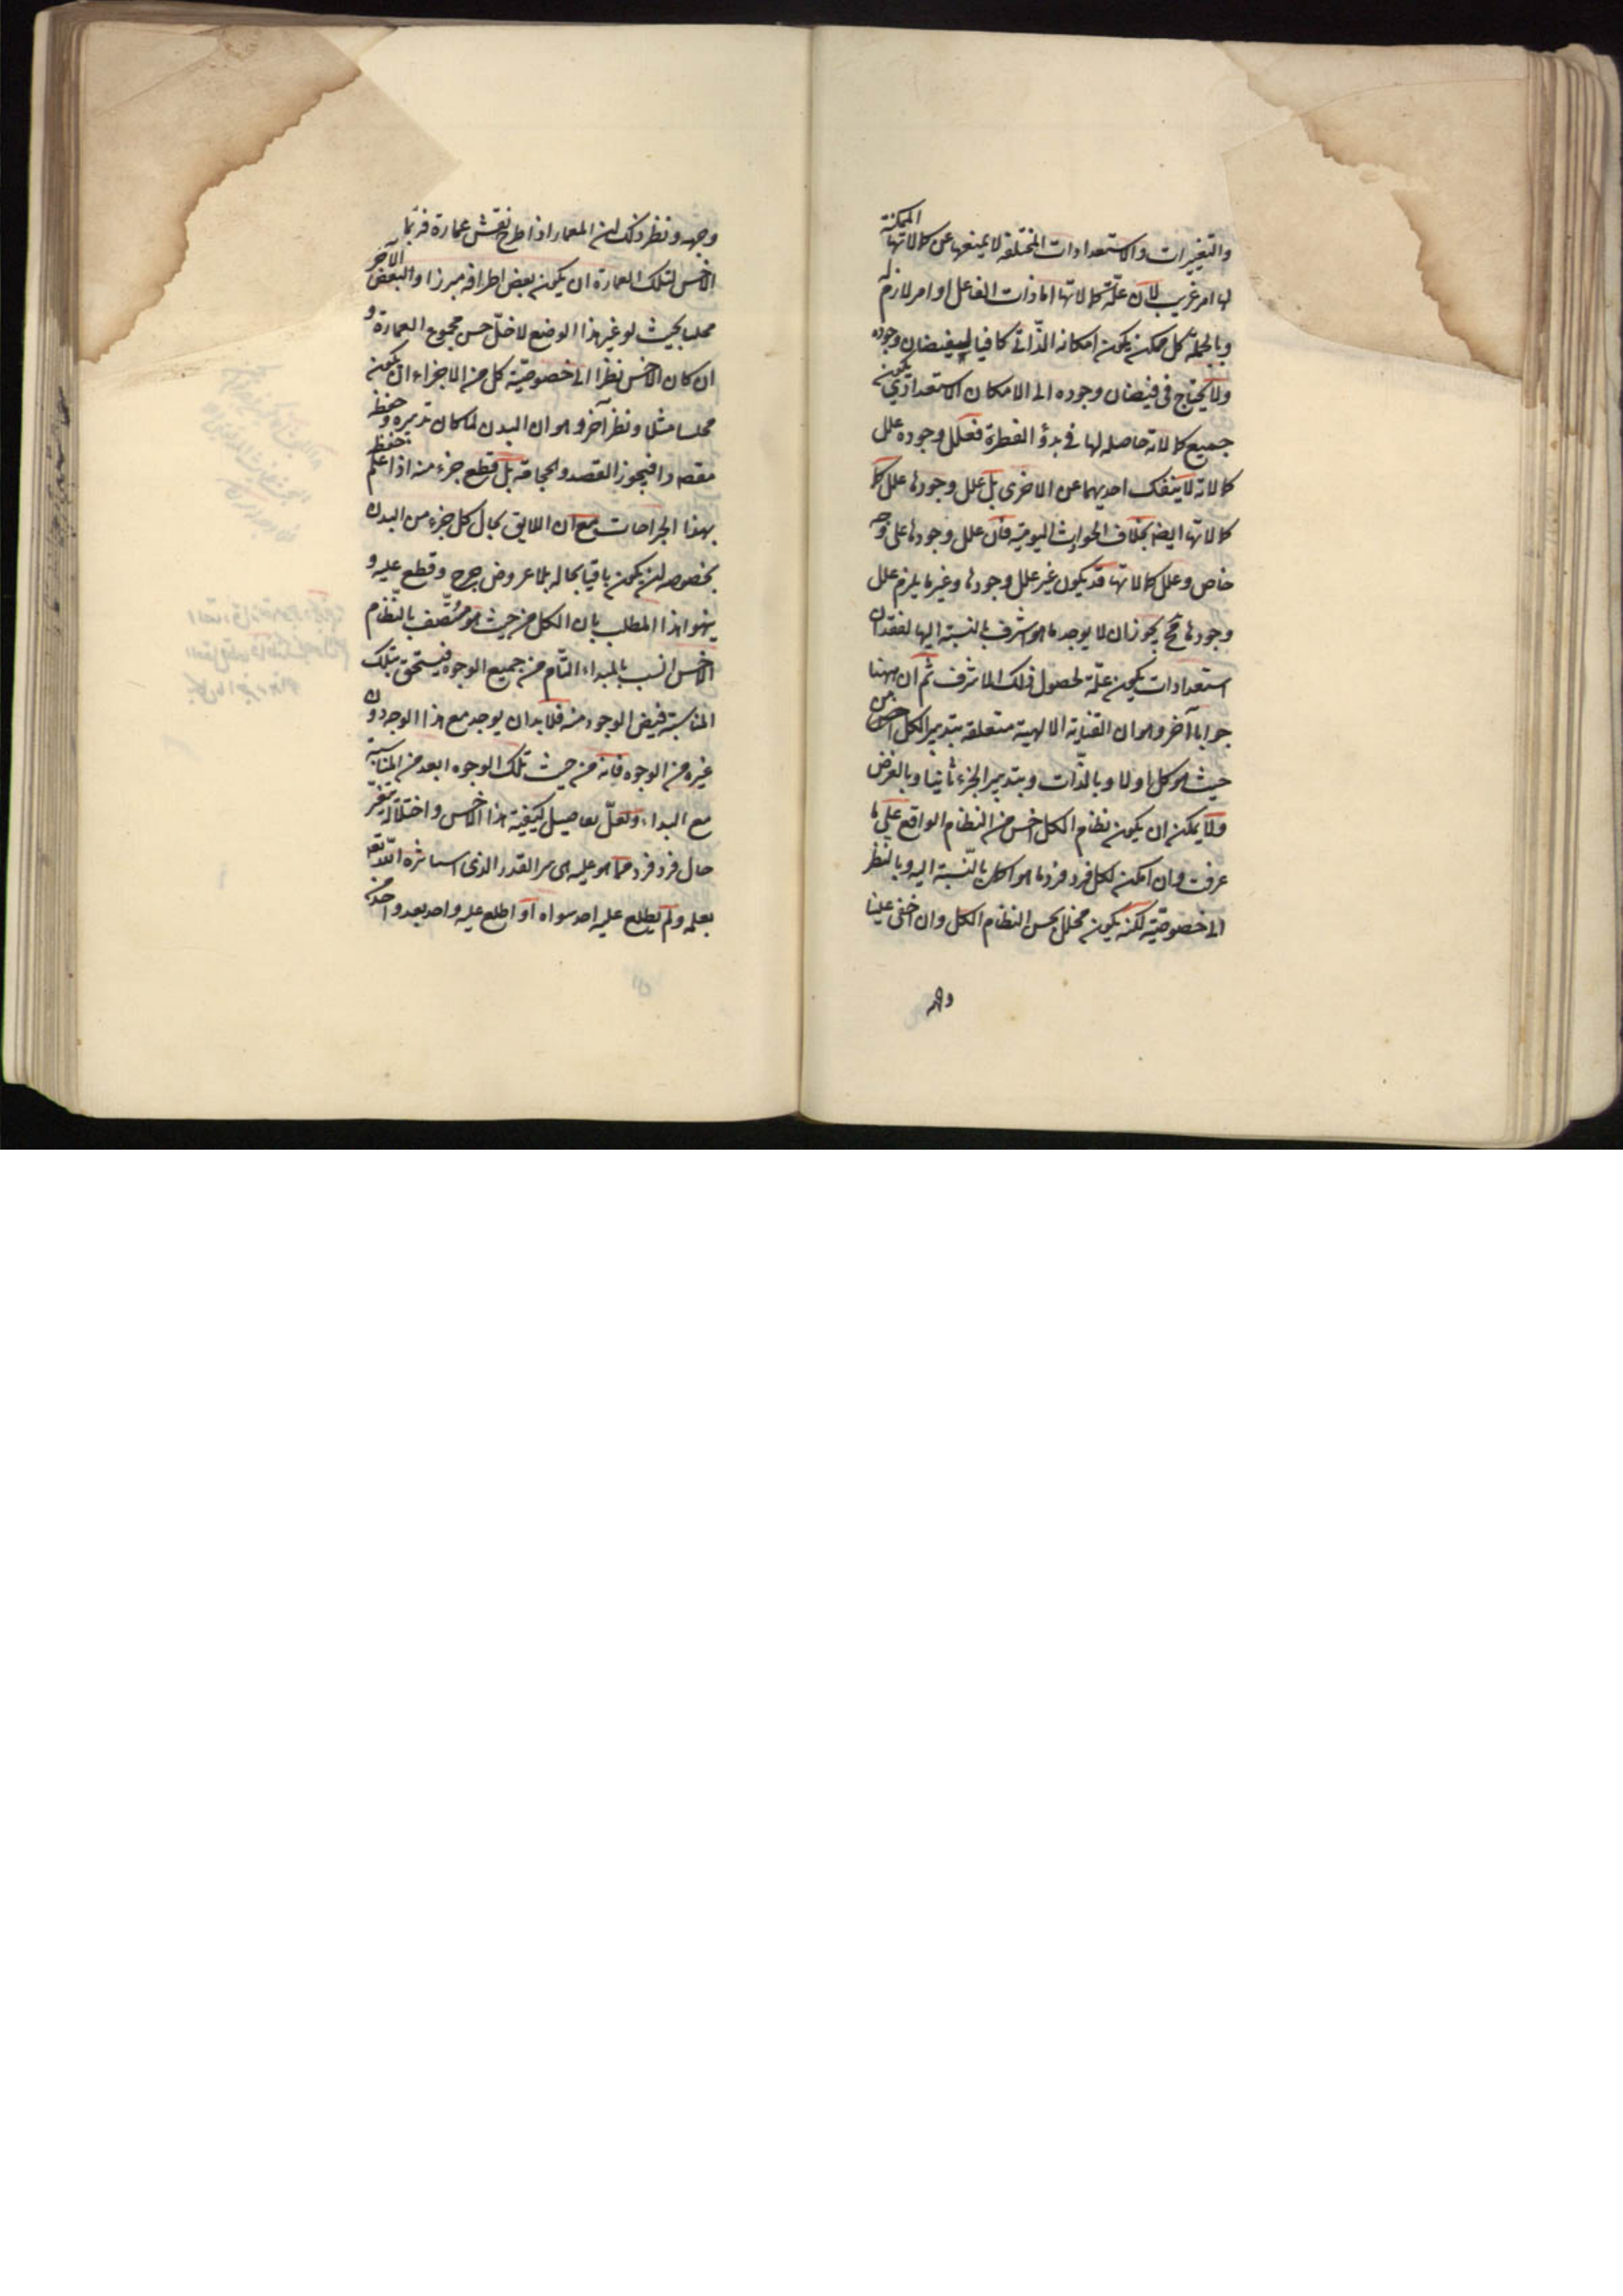 والتغيرات والاستعدادات المختلفة لا يمنعها عن كمالاتها الممكنة
لها امر غريب لان علة كمالاتها اما ذات الفاعل او امر لازم له
وبالجملة كل ممكن يكون امكانه الذاتي كافيا لفيضان وجوده
ولا يحتاج في فيضان وجوده الى الامكان الاستعدادي يكون
جميع كمالاته حاصلة لها في بدؤ الفطرة فعلل وجوده علل
كمالاته لا ينفك احديهما عن الاخرى بل علل وجودها علل
كمالاتها ايضا بخلاف الحوادث اليومية فان علل وجودها على وجه
خاص وعلل كمالاتها قد يكون غير علل وجودها وغير ما يلزم علل
وجودها فح يجوز ان لا يوجد ما هو اشرف بالنسبة اليها لفقدان
استعدادات يكون علة لحصول ذلك الاشرف ثم ان ههنا
جوابا آخر وهو ان العناية الالهية متعلقة بتدبير الكل من
حيث هو كل اولا وبالذات وبتدبير الجزء ثانيا وبالعرض
ولا يمكن ان يكون نظام الكل احسن من النظام الواقع على ما
عرفت وان امكن لكل فرد فرد ما هو اكمل بالنسبة اليه وبالنظر
الى خصوصيته لكنه يكون مخلل بحسن النظام الكل وان اخفى علينا
وجهه
وجهه ونظر ذلك ان المعمار اذا طرح نقش عمارة فربما
الاحسن لتلك العمارة ان يكون بعض اطرافه مبرزا والبعض الآخر
مجلسا بحيث لو غير هذا الوضع لاختل حسن مجموع العمارة و
ان كان الاحسن نظرا الى خصوصية كل من الاجزاء ان يكون
مجلسا مثلا ونظر آخر وهو ان البدن لما كان تدبيره وحفظه
مقصودا فيجوز الفصد والحجامة بل قطع جزء منه اذا علم حفظه
بهذا الجراحات مع ان اللايق بحال كل جزء من البدن
بخصوصه ان يكون باقيا بحاله بلا عروض جرح وقطع عليه و
هذا المطلب بان الكل من حيث هو متصف بالنظام
الاحسن انسب بالمبداء التام من جميع الوجوه فيستحق بتلك
المناسبة فيض الوجود منه فلا بد ان يوجد مع هذا الوجه دون
غيره من الوجوه فانه من حيث تلك الوجوه ابعد من المناسبة
مع المبداء ولعل تفاصيل كيفية هذا الاحسن واختلاله بتغير
حال فرد فرد مما هو عليه هي سر القدر الذي استاثره الله تعه
بعلمه ولم يطلع عليه احد سواه او اطلع عليه واحد بعد واحد